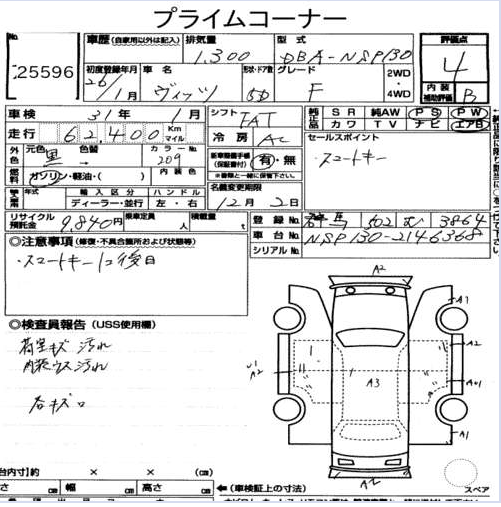 プライムコーナー
No.
25596
車歴 (自家用以外は記入)
排気量
1,300
型式
DBA-NSP130
評価点
4
初度登録年月
26/1月
車名
ヴィッツ
形状・ドア数
5D
グレード
F
2WD・4WD
内装
補助評価
B
車検 31年 1月
シフト
FAT
純正品
SR 純AW PS PW
カワ TV ナビ エアB
走行 62,400 Km マイル
冷房
AC
セールスポイント
・スマートキー
外色
元色 黒 → 色替
カラーNo.
209
新車整備手帳
(保証書付)
有・無
※書類と一緒に保管下さい。
燃料
ガソリン・軽油・( )
内装色
名義変更期限
12月 2日
年式 輸入区分 ハンドル
ディーラー・並行 左・右
リサイクル
預託金
9,840円
乗車定員 人
積載量 t
登録No.
群馬 502 む 3864
車台No.
NSP130-2146368
シリアルNo.
◎注意事項 (修復・不具合箇所および状態等)
・スマートキー1コ後日
◎検査員報告 (USS使用欄)
荷室キズ 汚れ
内装ウス汚れ
A2
A1
A2
U1
A2
A3
A1
A2
スペア
(車検証上の寸法)
台内寸)約 × × (cm)
さ (cm) 幅 (cm) 高さ (cm)